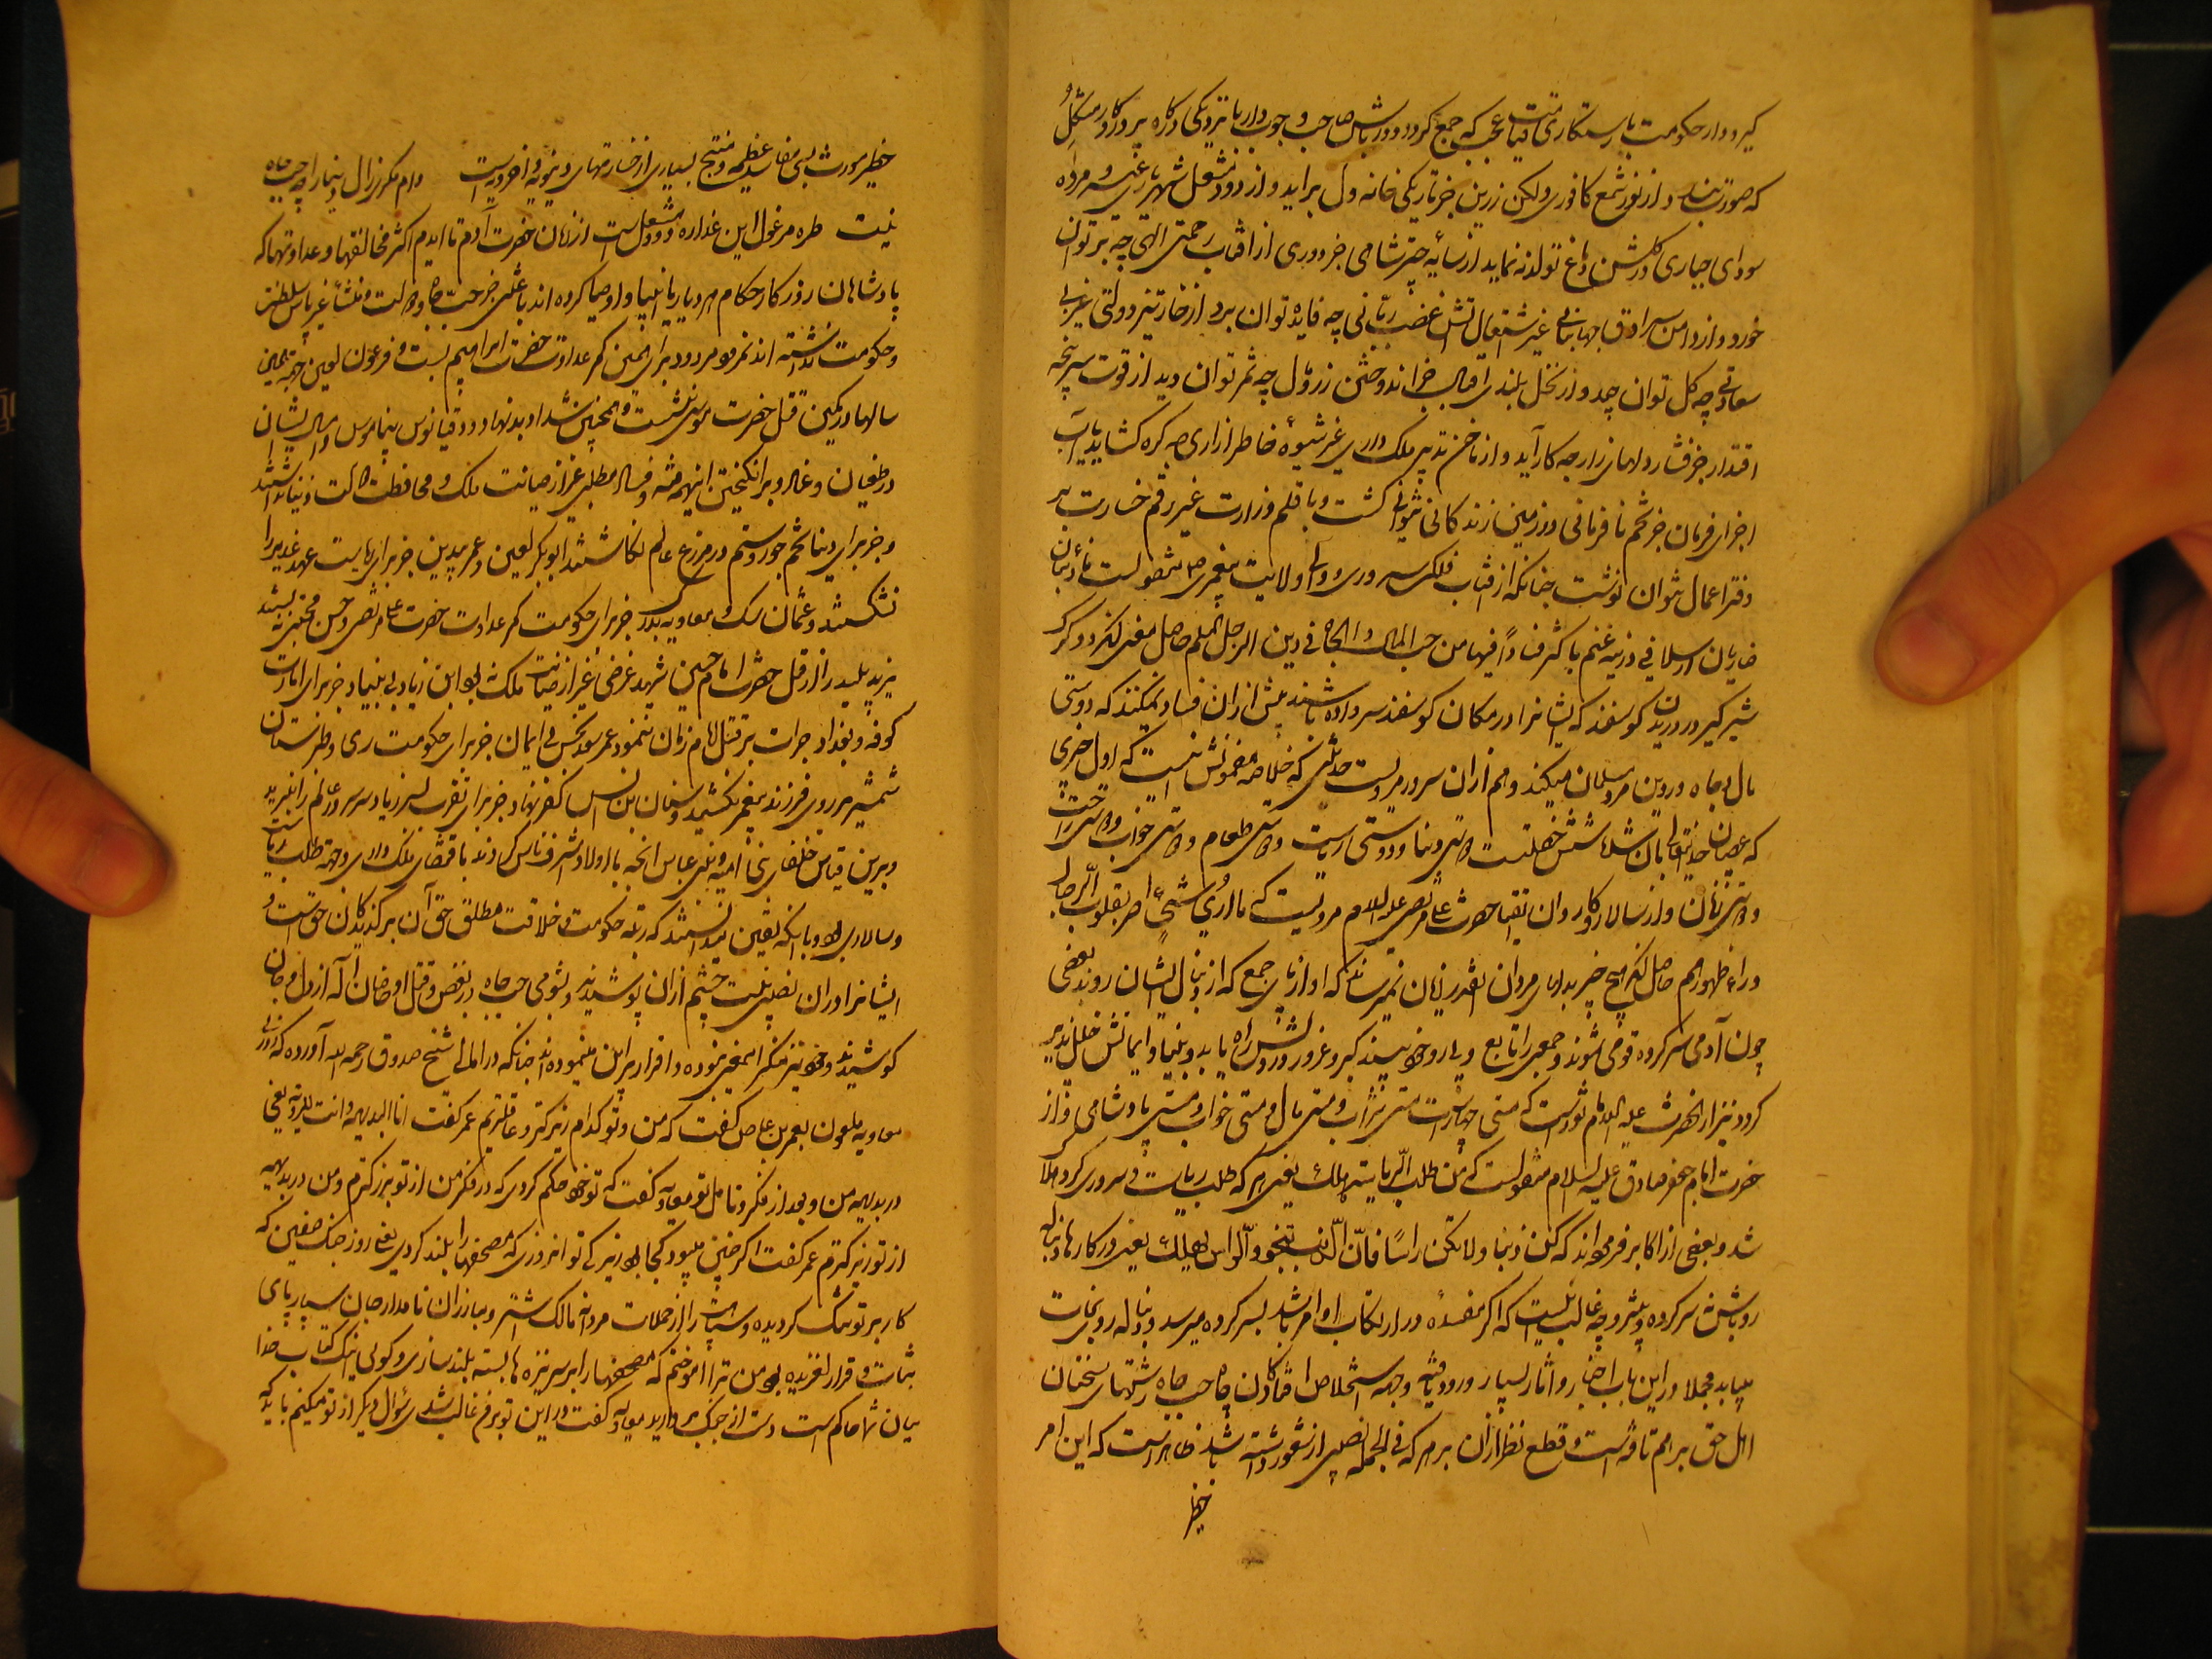 گیرودار حکومت با رستکاری قیامت عجب که جمع کردد و دورباش صاحب و چوب دار با نزدیکی درکاه پروردکار مشکل
که صورت بندد و از نور شمع کافوری و لکن زرین جز تاریکی خانه دل برآید و از دود مشعل شهرت غیر
سودای جباری در کلشن دماغ تولد نه نماید از سایه چتر شاهی جز دوری از آفتاب رحمت الهی چه بر توان
خورد و از دامن سرادق جهانبانی غیر اشتعال آتش غضب ربانی چه فایده توان برد از خار تیز دولتی غیر بی
سعادتی چه کل توان چید و از نخل بلند اقبال جز اندوختن زر و مال چه ثمر توان دید از قوت سرپنجه
اقتدار جز فشار دلهای زار چه کار آید و از ناخن تدبیر ملک داری غیر شیوه خاطر آزاری چه کره کشاید با آب
اجرای فرمان جز تخم نافرمانی در زمین زندکانی نتوان کشت و با قلم وزارت غیر رقم خسارت بر
دفتر اعمال نتوان نوشت چنانکه از آفتاب فلک سروری و والی ولایت پیغمبری ص منقولست ما ذئبان
ضاریان ارسلا فی زریبة غنم باکثر فسادا فیها من حب المال والجاه فی دین الرجل المسلم حاصل معنی آنکه دو کرک
شیرکیر در دریدن کوسفند که ایشانرا در مکان کوسفند سر داده باشند بیش از آن فساد نمیکنند که دوستی
مال و جاه در دین مرد مسلمان میکند و هم از آن سرور مرویست حدیثی که خلاصه مضمونش اینست که اول چیزی
که عصیان خدایتعالی بآن شد شش خصلت دوستی دنیا و دوستی ریاست و دوستی طعام و دوستی خواب و دوستی راحت
و دوستی زنان و از سالار کاروان اتقیا حضرت علی مرتضی علیه السلام مرویست که ما اری شیئا اضر بقلوب الرجال
وراء ظهورهم حاصل آنکه هیچ چیز بدلهای مردان آنقدر زیان نمیرساند که آواز پای جمع که از دنبال ایشان روند یعنی
چون آدمی سرکرده قومی شوند و جمعی را تابع و پی‌رو خود بیند کبر و غرور در دلش راه یابد و بنیاد ایمانش خلل پذیر
کردد و نیز از آنحضرت علیه السلام ماثورست که مستی چهارست مستی شراب و مستی مال و مستی خواب و مستی پادشاهی و از
حضرت امام جعفر صادق علیه السلام منقولست که من طلب الریاسة هلک یعنی هر که طلب ریاست و سروری کرد هلاک
شد و بعضی از اکابر فرموده‌اند که کن ذنبا ولا تکن راسا فان الذنب ینجو والراس یهلک یعنی در کارها دنباله
رو باش نه سرکرده و پیشرو چه غالب اینست که اکر مفسده در ارتکاب او امر باشد بسرکرده میرسد و دنباله‌رو نجات
مییابد مجملا در این باب اخبار و آثار بسیار ورود یافته وجهة استخلاص افتادکان چاه حب جاه رشتهای سخنان
اهل حق برهم تافته است و قطع نظر از آن بر هر که فی الجمله نصیبی از شعور داشته باشد ظاهرست که این امر
خطیر
خطیر مورث بسی مفاسد عظیمه و منتج بسیاری از خسارتهای دنیویه و اخرویه است دام مکر زال دنیا را چه جاه
نیست طره مرغول این غداره دود دل است از زمان حضرت آدم تا ایندم اکثر مخالفتها و عداوتها که
پادشاهان روزکار و حکام هر دیار با انبیا و اوصیا کرده‌اند باعثی جز حب جاه و جلالت و منشأ غیر پاس سلطنت
و حکومت نداشته‌اند نمرود مردود برای همین کمر عداوت حضرت ابراهیم بست و فرعون لعین جهة همین
سالها در کمین قتل حضرت موسی نشست و همچنین شداد بدنهاد و دقیانوس بیناموس و امثال ایشان
در طغیان و عناد و برانکیختن اینهمه فتنه و فساد مطلبی غیر از صیانت ملک و محافظت حالت دنیا نداشتند
و جز برای دنیا تخم جور و ستم در مزرع عالم نکاشتند ابوبکر لعین و عمر بیدین جز برای ریاست عهد غدیر را
نشکستند و عثمان سک و معاویه بدرک جز برای حکومت کمر عداوت حضرت علی مرتضی و حسن مجتبی نه بستند
یزید پلید را از قتل حضرت امام حسین شهید غرضی غیر از ضبط ملک نه بود ابن زیاد بی‌بنیاد جز برای امارت
کوفه و بغداد جرات بر قتل امام زمان ننمود عمر سعد نحس بی ایمان جز برای حکومت ری و طبرستان
شمشیر بر روی فرزند پیغمبر نکشید و سنان بن انس کفر نهاد جز برای تقرب پسر زیاد سر سرور عالم را نبرید
و برین قیاس خلفای بنی امیه و بنی عباس آنچه با اولاد اشرف ناس کردند باقتضای ملک داری و جهة طلب ریاست
و سالاری بود و با آنکه بیقین میدانستند که رتبه حکومت و خلافت مطلق حق آن برکزیدکان حق است و
ایشانرا در آن نصیبی نیست چشم از آن پوشیدند و بشومی حب جاه در بغض و قتل اوصیا آن از دل و جان
کوشیدند و خود نیز منکر این معنی نبوده و اقرار بر این مینموده‌اند چنانکه در امالی شیخ صدوق رحمه الله آورده که روزی
معاویه ملعون بعمر بن عاص کفت که من و تو کدام زیرکتر و عاقلتریم عمر کفت انا للبدیهه و انت للرویه یعنی
در بدیهه من و بعد از فکر و تامل تو معاویه کفت که تو خود حکم کردی که در فکر من از تو زیرکترم و من در بدیهه
از تو زیرکترم عمر کفت اکر چنین میبود کجا بود زیرکی تو آنروزی که مصحفها را بلند کردی یعنی روز جنک صفین که
کار بر تو تنک کردیده و سپاهت را از حملات مردانه مالک اشتر و مبارزان نامدار جان سپار پای
ثبات و قرار لغزیده بود من ترا آموختم که مصحفها را بر سر نیزه‌ها بسته بلند سازی و کوئی اینک کتاب خدا
میان شما حاکم است دست از جنک بردارید معاویه کفت در این تو برمن غالب شدی سؤال دیکر از تو میکنم باید که